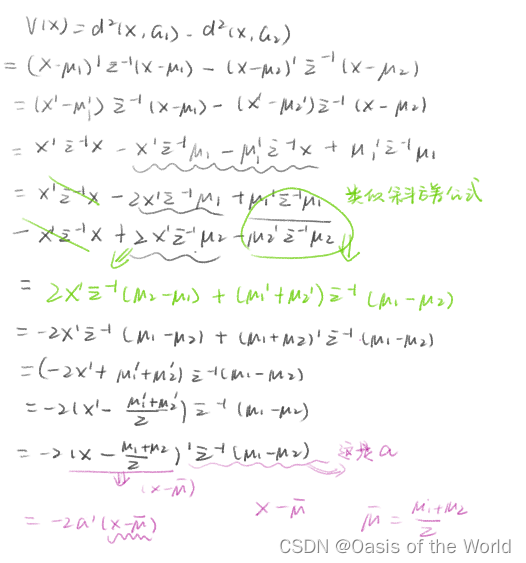 V(x) = d²(x, G₁) - d²(x, G₂)
= (x-μ₁)'Σ⁻¹(x-μ₁) - (x-μ₂)'Σ⁻¹(x-μ₂)
= (x'-μ₁')Σ⁻¹(x-μ₁) - (x'-μ₂')Σ⁻¹(x-μ₂)
= x'Σ⁻¹x - x'Σ⁻¹μ₁ - μ₁'Σ⁻¹x + μ₁'Σ⁻¹μ₁
= x'Σ⁻¹x - 2x'Σ⁻¹μ₁ + μ₁'Σ⁻¹μ₁ 类似平方差公式
- x'Σ⁻¹x + 2x'Σ⁻¹μ₂ - μ₂'Σ⁻¹μ₂
= 2x'Σ⁻¹(μ₂-μ₁) + (μ₁'+μ₂')Σ⁻¹(μ₁-μ₂)
= -2x'Σ⁻¹(μ₁-μ₂) + (μ₁+μ₂)'Σ⁻¹(μ₁-μ₂)
= (-2x' + μ₁'+μ₂')Σ⁻¹(μ₁-μ₂)
= -2(x' - (μ₁'+μ₂')/2)Σ⁻¹(μ₁-μ₂)
= -2(x - (μ₁+μ₂)/2)'Σ⁻¹(μ₁-μ₂) 这是a
(x-μ̄)
= -2a'(x-μ̄) x-μ̄ μ̄ = (μ₁+μ₂)/2
CSDN @Oasis of the World